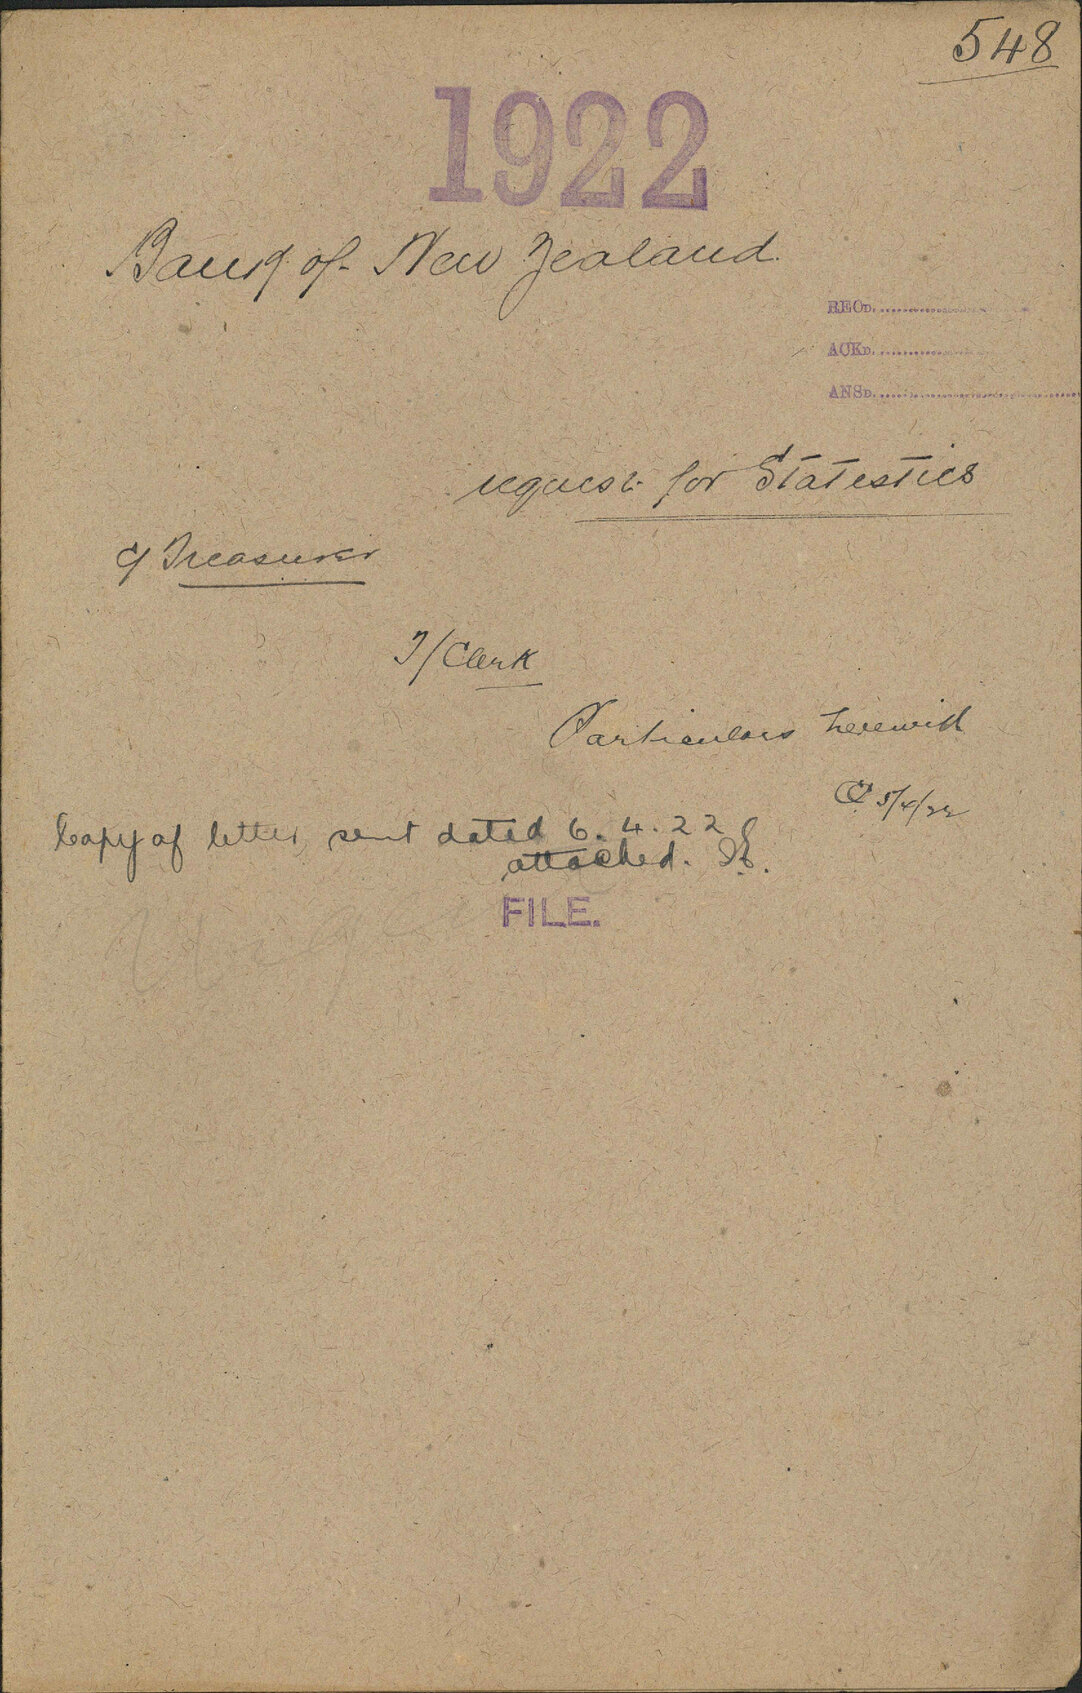 548
1922
Bank of New Zealand.
RECD.
ACKD.
ANSD.
request for Statestics
C/ Treasurer
T/Clerk
Particulars herewith
5/4/22
Copy of letter sent dated 6.4.22
attached.
FILE.